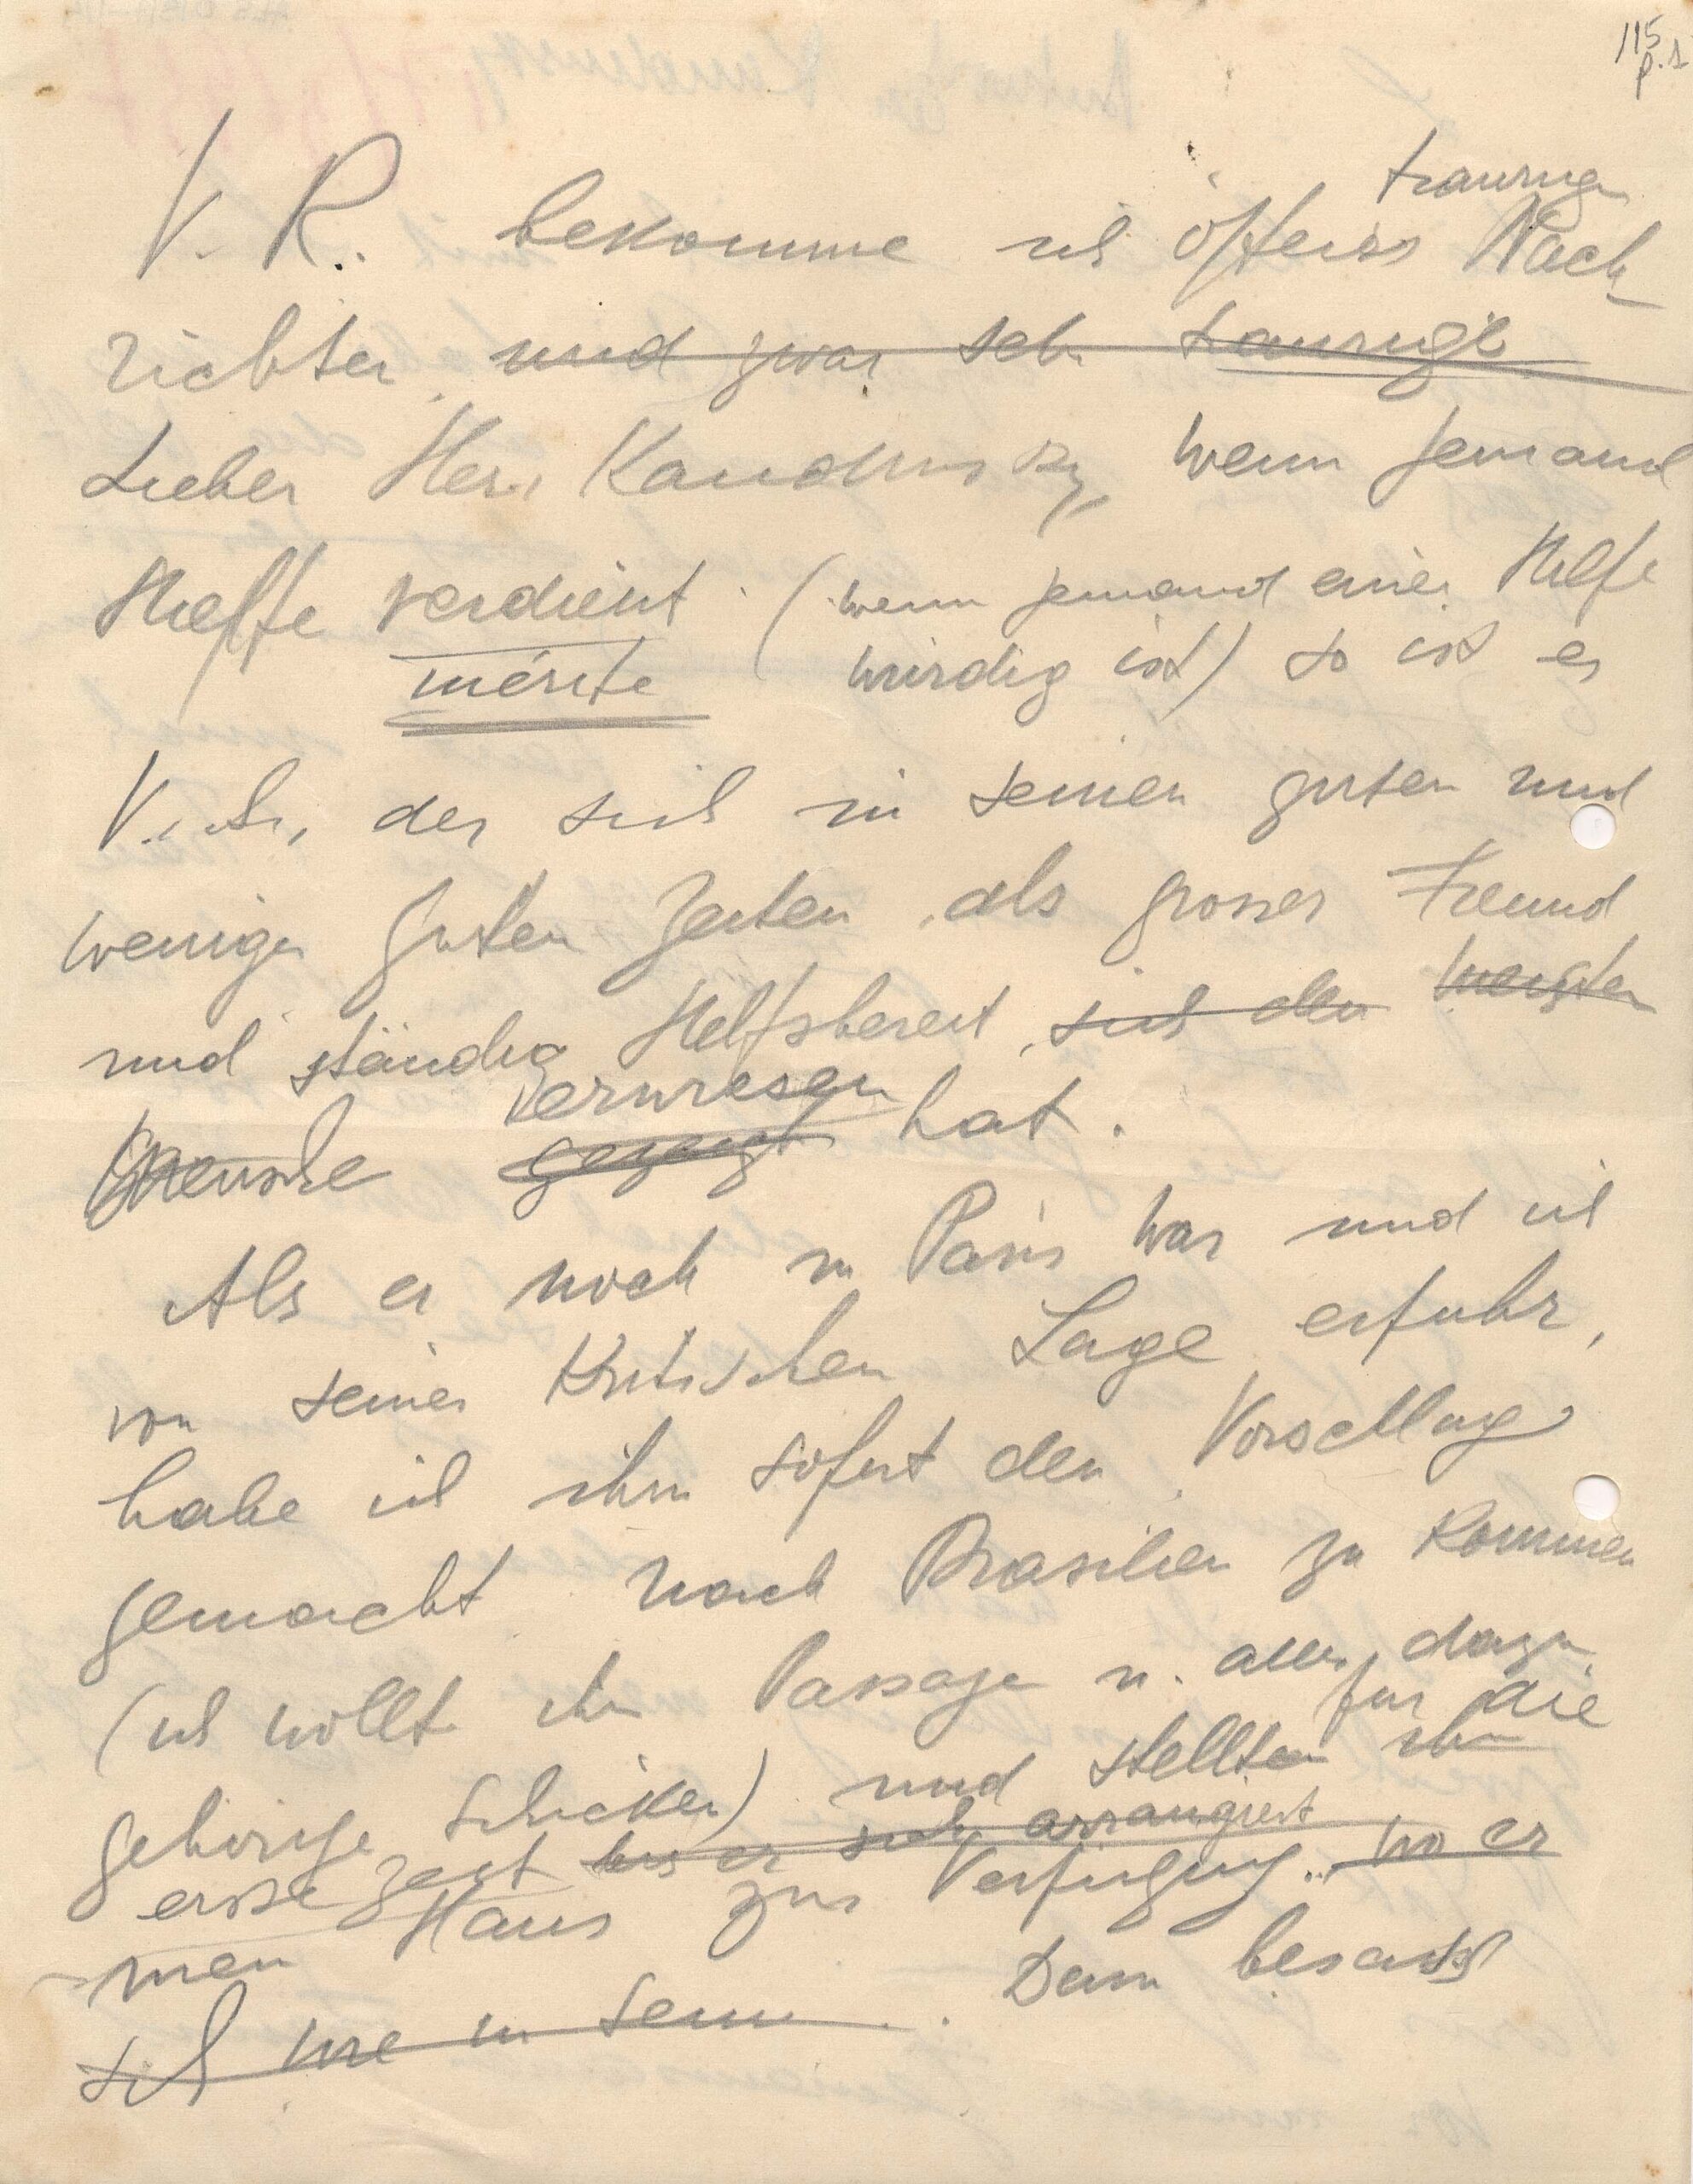 115
p. 1
traurige
V. R. bekomme ich öfterss Nach
richten und zwar sehr traurige
Lieber Herr Kandinsky, wenn jemand
Hielfe verdient (wenn jemand einer Hilfe
mérite würdig ist) so ist es
V. R., der sich in seinen guten und
weniger guten Zeiten als grosser Freund
und ständig Helfsbereit, sich den meisten
erwiesen
Mensche gezeigt hat.
Als er noch in Paris war und ich
von seiner Kritischen Lage erfuhr,
habe ich ihm sofort den Vorschlag
gemacht nach Brasilien zu kommen
(ich wollte ihm Passage u. alles dazu
für die
gehörige schicken) und stellten ihm
erste Zeit bis er sich arrangiert
mein Haus zur Verfügung.. wo er
sich wie in seinem. Dann besass